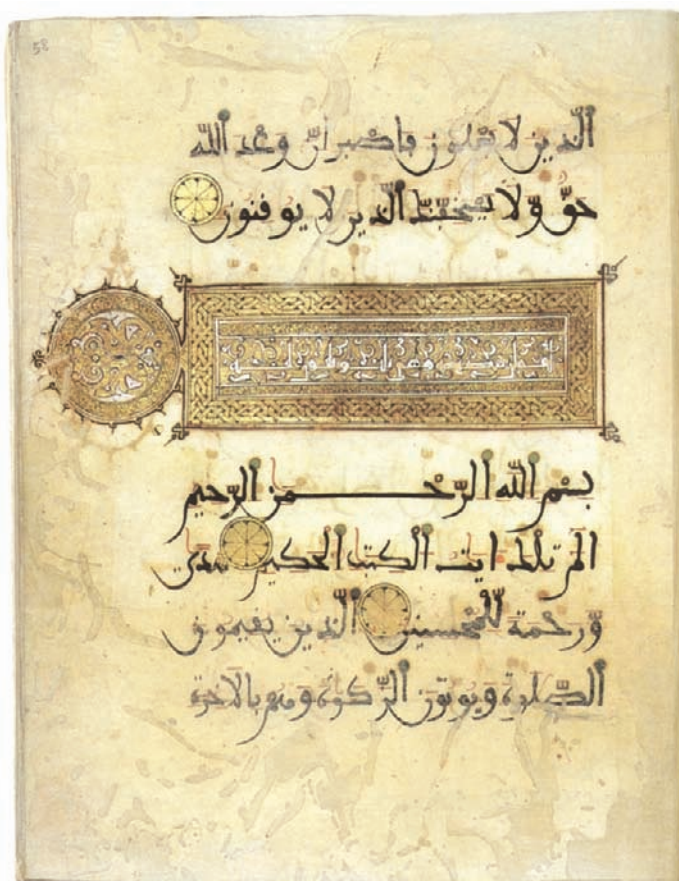 58
الَّذين لا يعلمون فاصبر انّ وَعْد اللَّه
حقّ وّلا يستخفّنّك الَّذين لا يوقنون
بسْم اللَّه الرَّحْمن الرَّحيم
الم تلك ايت الكتب الحكيم هدى
وّرحمة لّلمُحْسنين الَّذين يقيمون
الصَّلوة ويوتون الزَّكوة وهم بالاخرة